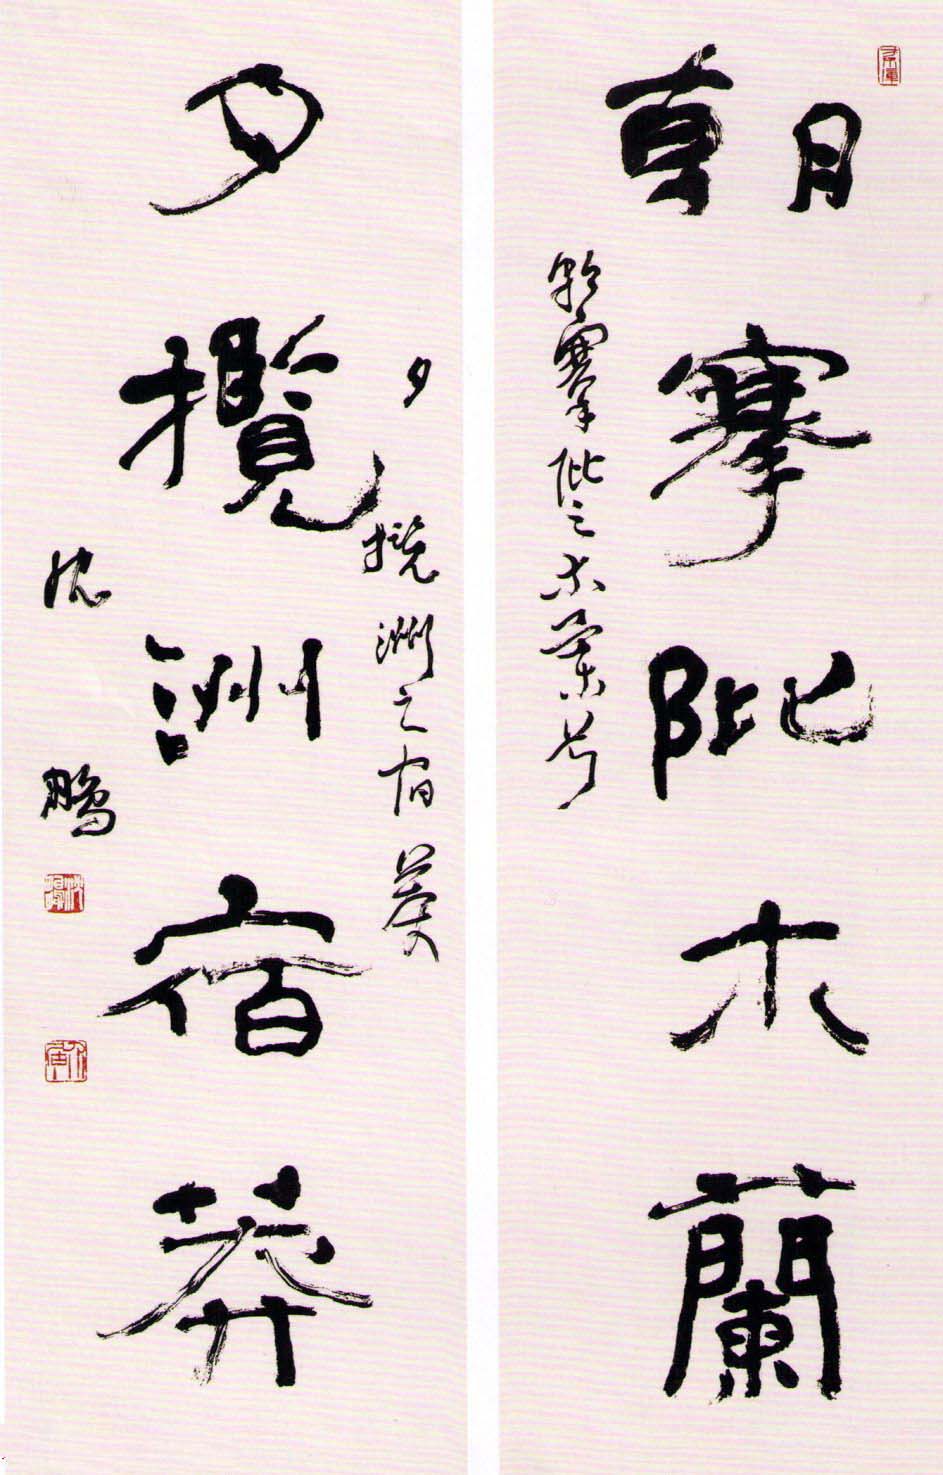 朝搴阰木蘭
朝搴阰之木蘭兮
夕攬洲宿莽
夕攬洲之宿莽
沈鵬
沈鵬